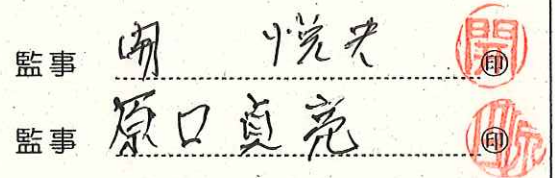 監事 関 悦 ㊞
監事 原口貞亮 ㊞